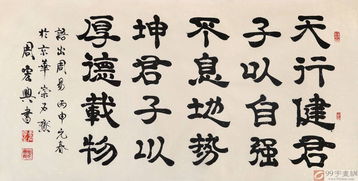 天行健君
子以自强
不息地势
坤君子以
厚德載物
語出周易丙申元春
於京華宗石齋
周宏興書
99字画网